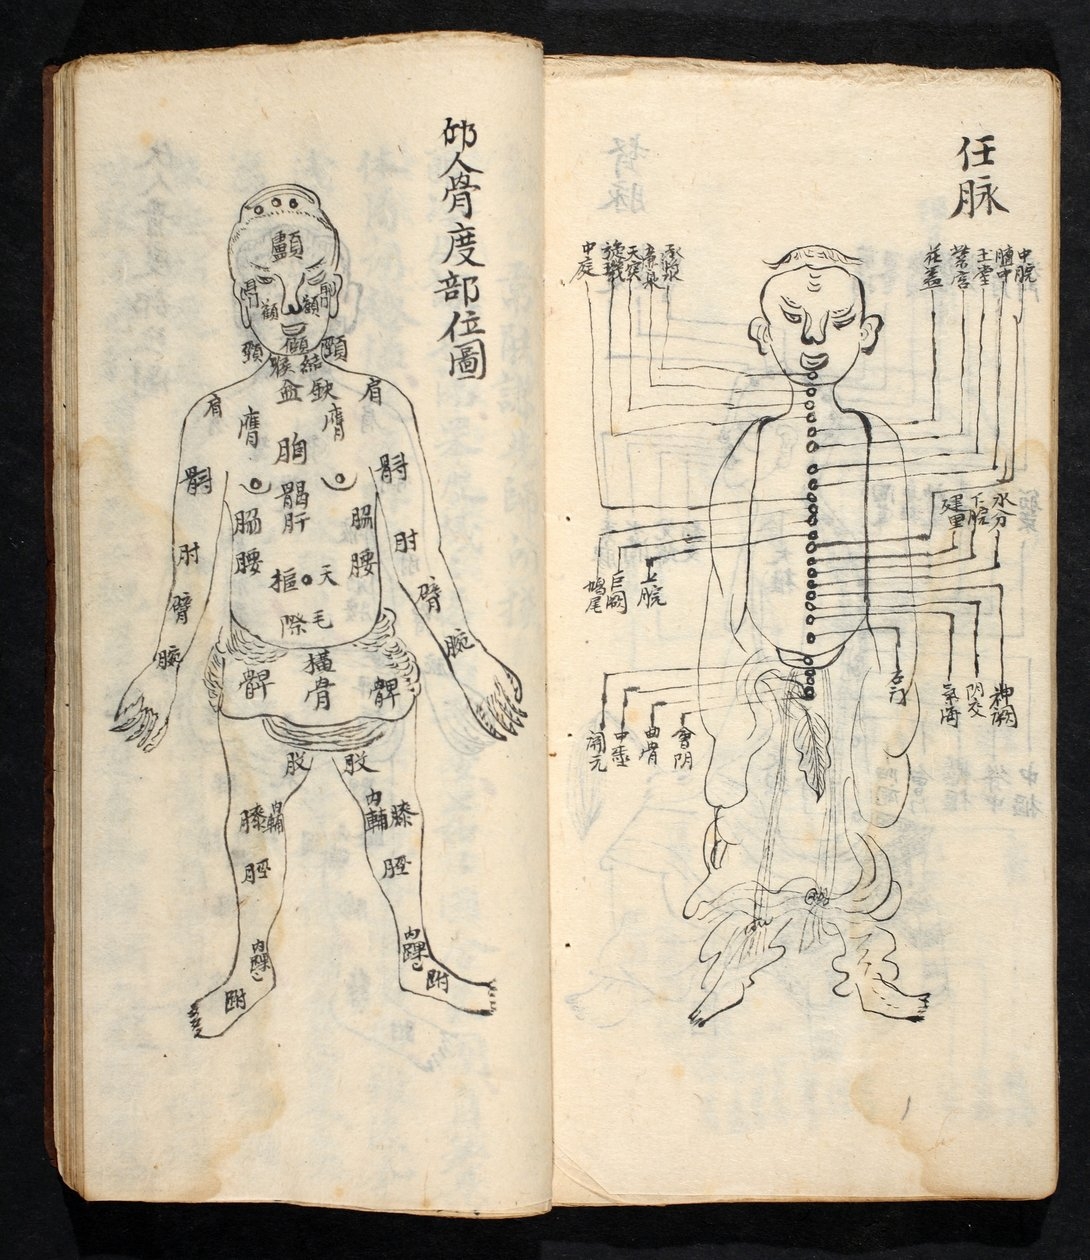 任脉
中脘
膻中
玉堂
紫宮
花蓋
承漿
廉泉
天突
璇璣
中庭
水分
下脘
建里
上脘
巨闕
鳩尾
神闕
陰交
氣海
石門
會阴
曲骨
中極
関元
仰人骨度部位圖
顱
顴
顴
頤
頸
頸
結
喉
缺
盆
肩
肩
膺
膺
胸
髃
髃
𩩲
骬
脇
脇
肘
肘
腰
腰
天
樞
臂
臂
毛
際
腕
腕
橫
骨
髀
髀
股
股
膝
內輔
膝
內輔
脛
脛
內踝
內踝
跗
跗